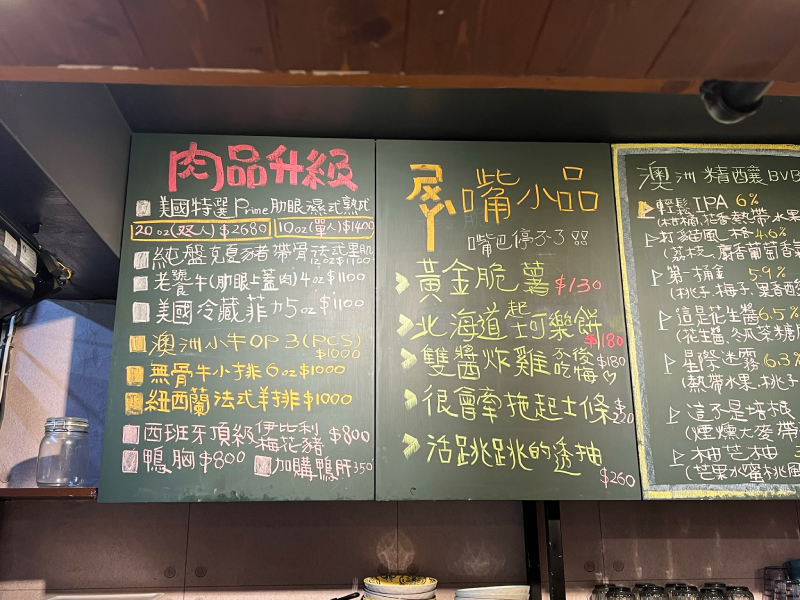 肉品升級
美國特選Prime肋眼濕式熟成
20oz(双人)$2680 10oz(單人)$1400
純盤克夏豬帶骨法式里肌
12oz$1100
老饕牛(肋眼上蓋肉)4oz$1100
美國冷藏菲力5oz$1100
澳洲小牛OP3(PCS)
$1000
無骨牛小排6oz$1000
紐西蘭法式羊排$1000
西班牙頂級伊比利
梅花豬 $800
鴨胸$800 加購鴨肝350
尺ㄨㄚ嘴小品
嘴巴停不了
黃金脆薯 $130
北海道起士可樂餅
$180
雙醬炸雞不後
吃悔 $180
很會牽拖起士條$220
活跳跳的透抽
$260
澳洲精釀BVB
輕鬆IPA 6%
打貓風格4.6%
(荔枝、麝香葡萄香氣
第一桶金 5.9%
(桃子.梅子.果香
這是花生醬6.5%
(花生醬、冬瓜茶糖
星際迷霧6.3%
(熱帶水果.桃子
這不是培根
(煙燻大麥帶
柚芒柚
(芒果水蜜桃風